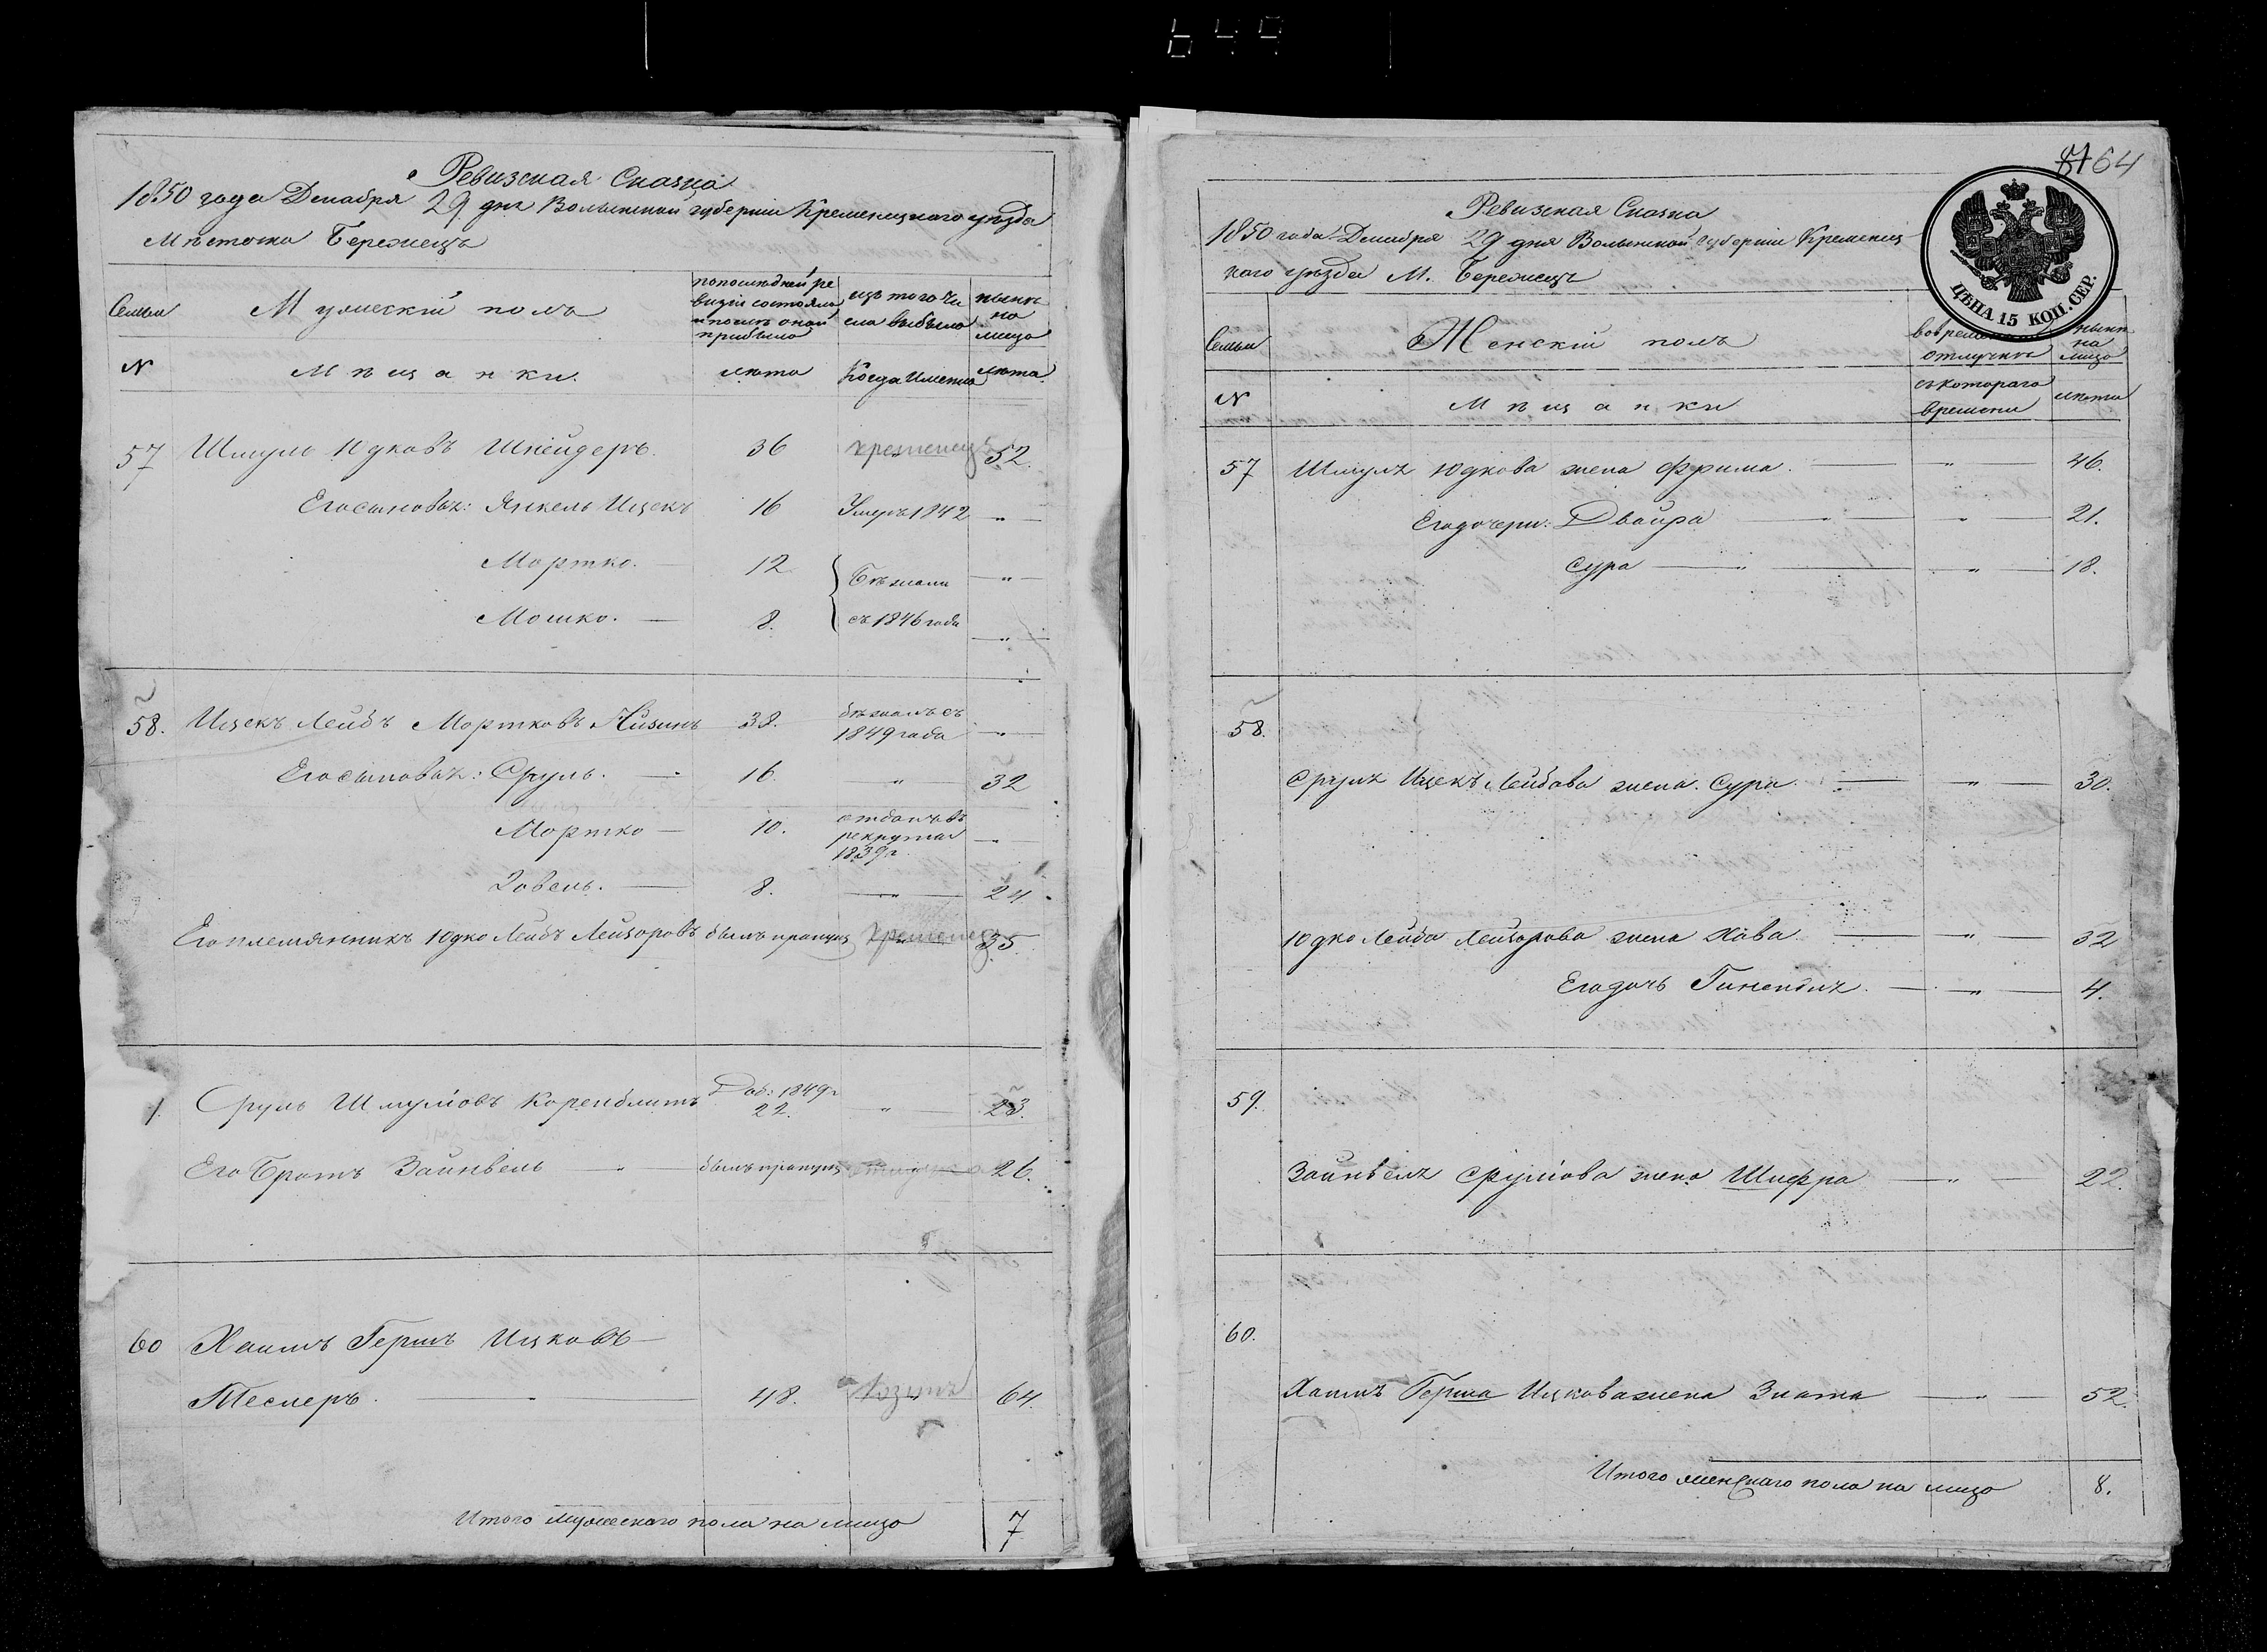 649
Ревизская Сказка
1850 года Декабря 29 дня Волынской губернии Кременецкаго уезда
Местечка Бережецъ
Семьи
Мужескій полъ
по последней ре
визіи состояло
и после оной
прибыло
изъ того чи
сла выбыло
ныне
на
лицо
N
Мещанки.
лета
Когда именно
лета.
57 Шмуль Юдковъ Шнейдеръ. 36 кременецъ 52.
Его сыновья: Янкель Ицекъ 16 Умеръ 1842 — " —
Мортко. — 12 Бежали — " —
Мошко. — 8. съ 1846 года — " —
58. Ицекъ Лейбъ Мортковъ 38. бежалъ съ
1849 года — " —
Его сыновья: Сруль. — 16 — " — 32
Мортко — 10. отданъ въ
рекруты
1839 г. — " —
Зовель. — 8. — " — 24.
Его племянникъ Юдко Лейбъ Лейзоровъ былъ пропущ кременец 35.
Сруль Шмулiовъ Коренблитъ Доб: 1849 г
22. " 23.
Его Братъ Зайнвель — " былъ пропущ — 26.
60 Хаимъ Гершъ Ицковъ —
Теслеръ. — " — 48. 64.
Итого мужескаго пола на лицо 7
81 64
ЦѢНА 15 КОП. СЕР.
Ревизская Сказка
1850 года Декабря 29 дня Волынской губерніи Кременец
каго уезда М. Бережецъ
Семьи
Женскій полъ
во времен
отлучке
ныне
на
лицо
N
Мещанки
съ котораго
времени
лета
57 Шмуля Юдкова жена Фрима. — " — 46.
Его дочери: Двойра — " — " — 21.
Сура — " — " — 18.
58.
Сруля Ицекъ Лейбова жена Сура. — " — 30.
Юдко Лейба Лейзорова жена Хава — " — 32
Его дочь Гинендля. — " — 4.
59.
Зайнвеля Срулiова жена Шифра — " — 22.
60.
Хаимъ Герша Ицкова жена Злата — " — 52.
Итого женскаго пола на лицо 8.